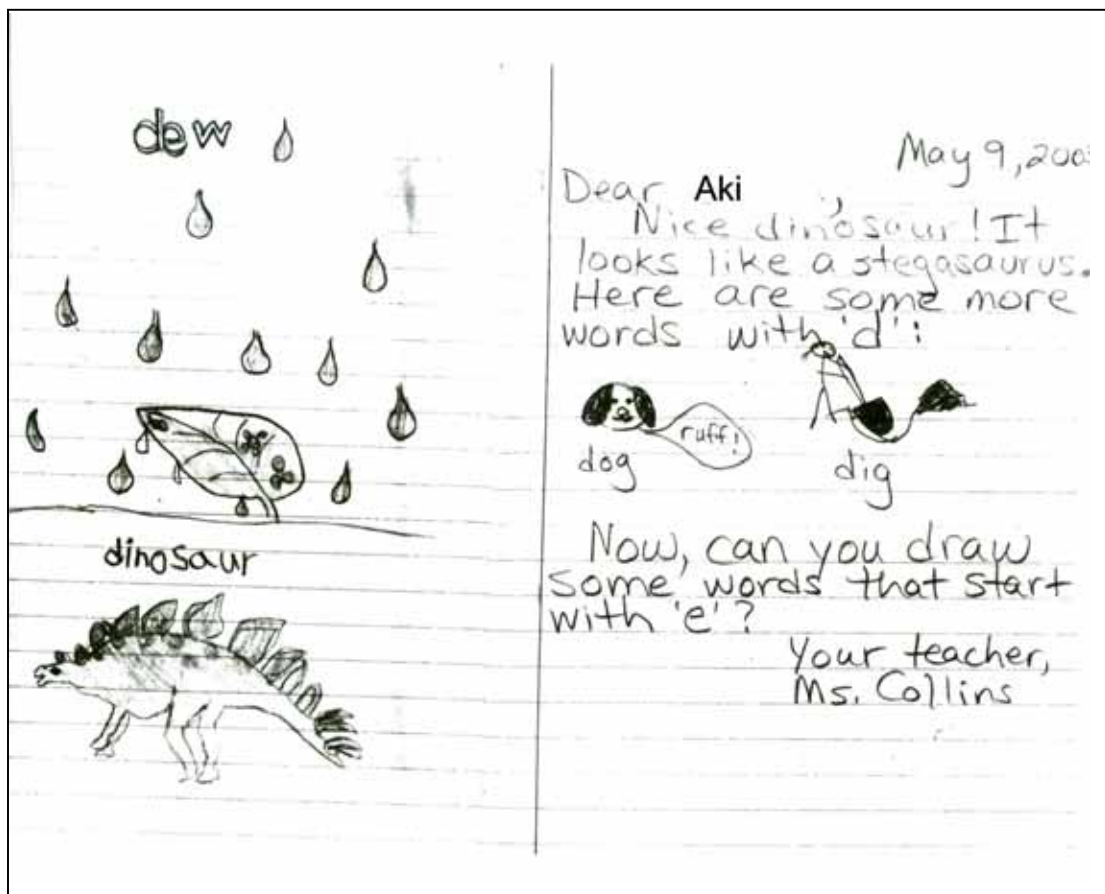 dew
dinosaur
May 9, 200
Dear Aki,
Nice dinosaur! It
looks like a stegasaurus.
Here are some more
words with 'd':
ruff!
dog
dig
Now, can you draw
some words that start
with 'e'?
Your teacher,
Ms. Collins